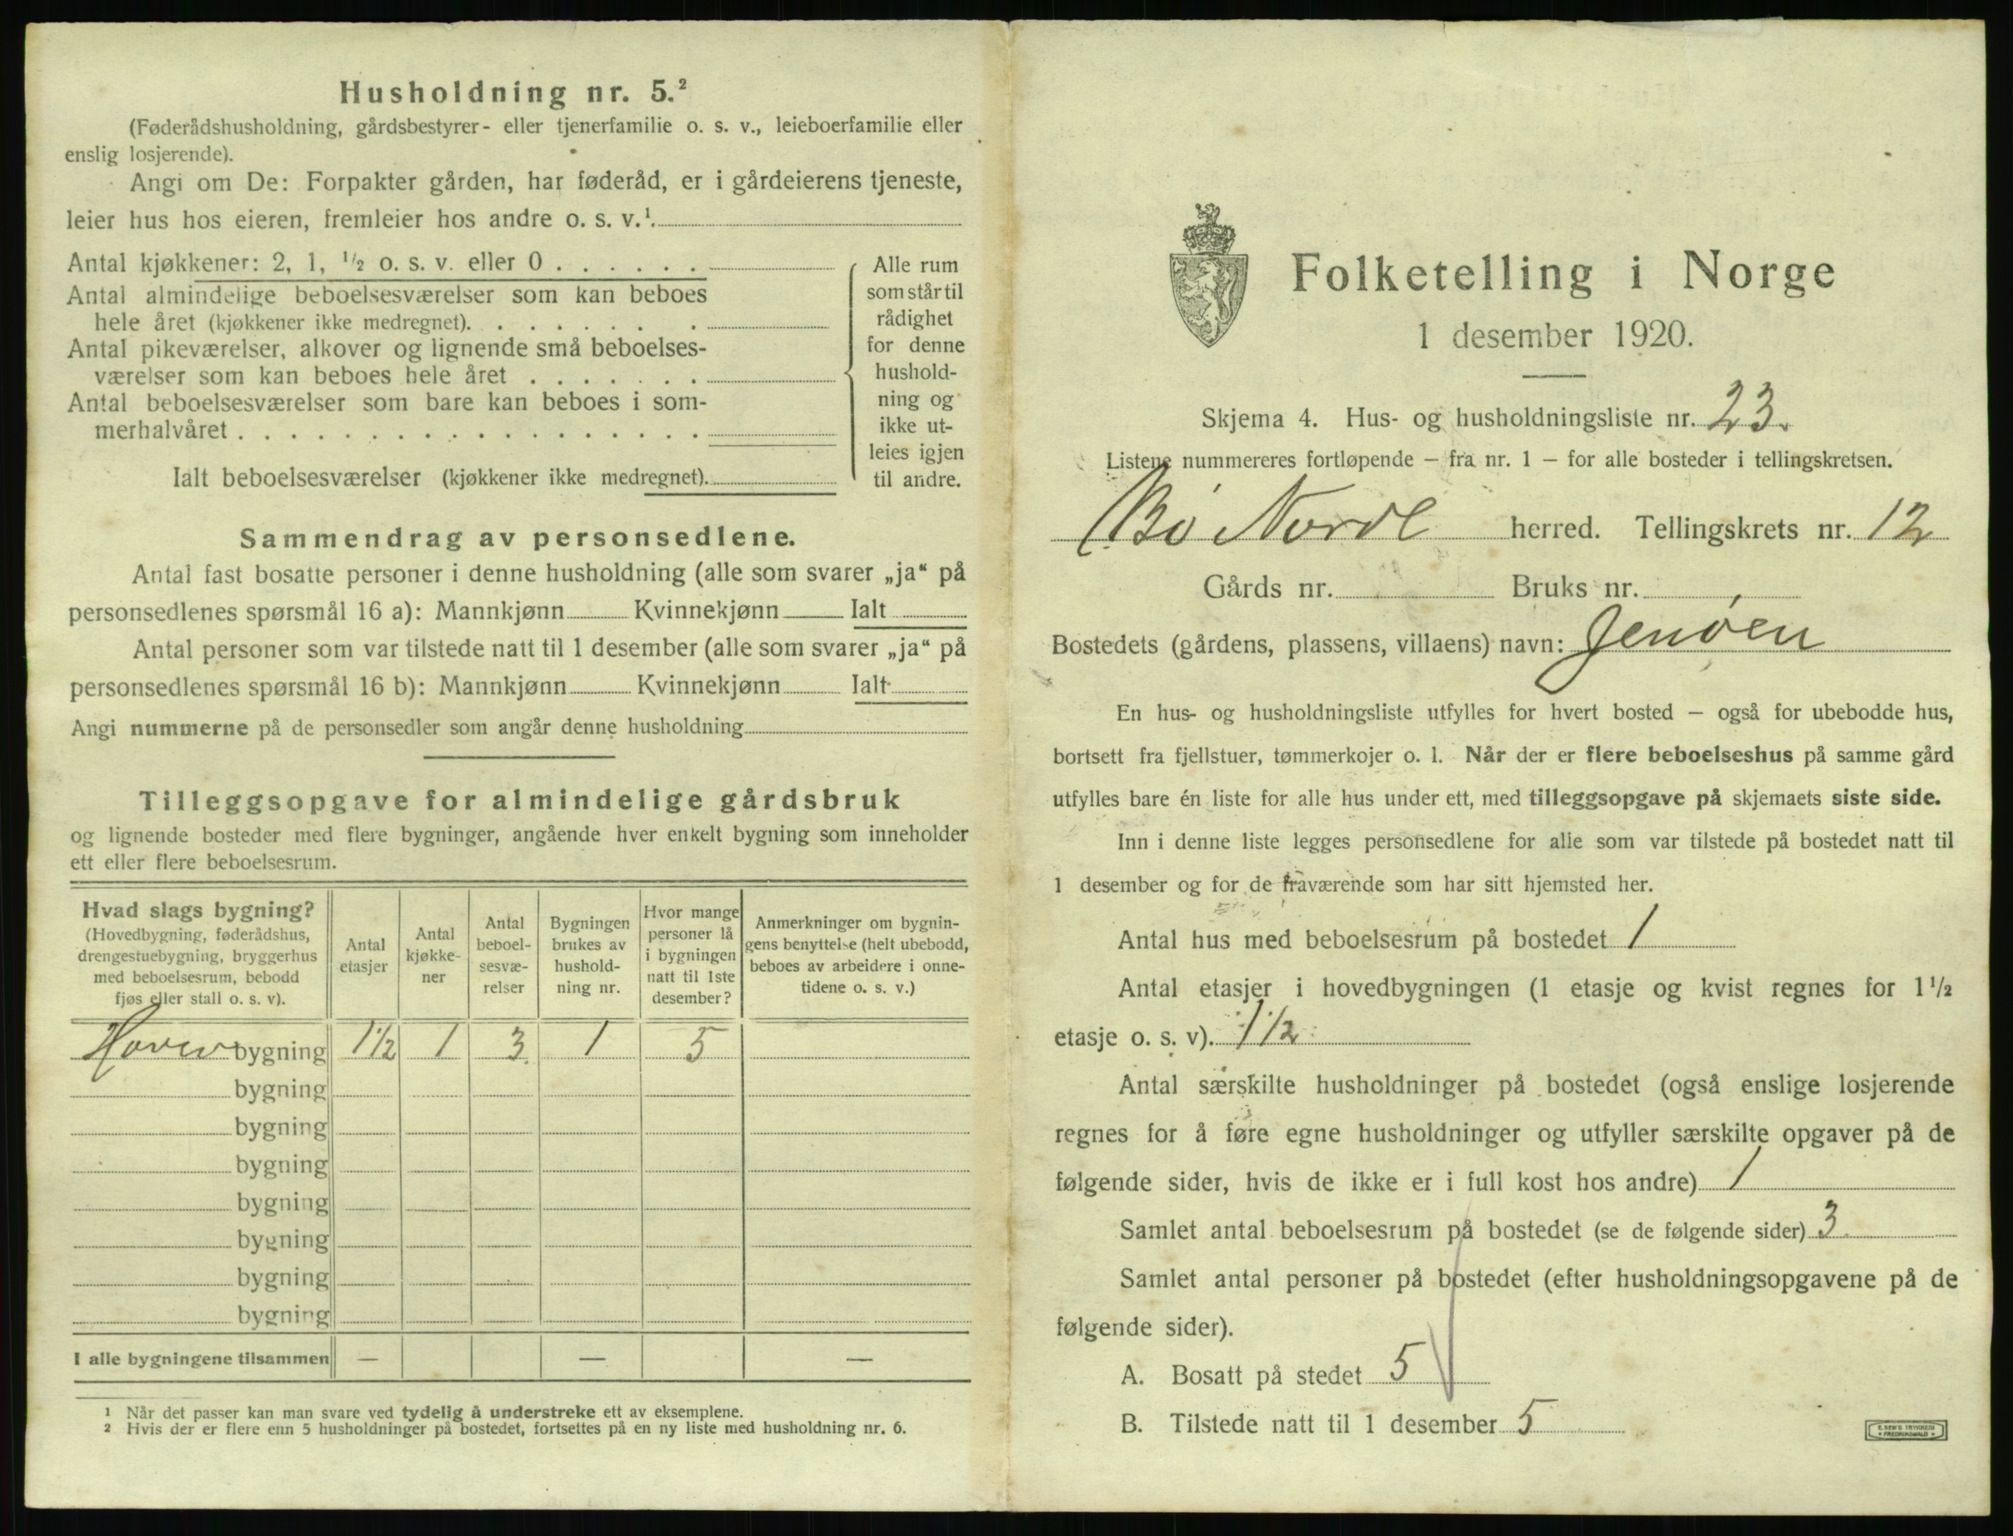 Husholdning nr. 5.²
(Føderådshusholdning, gårdsbestyrer- eller tjenerfamilie o. s. v., leieboerfamilie eller
enslig losjerende).
Angi om De: Forpakter gården, har føderåd, er i gårdeierens tjeneste,
leier hus hos eieren, fremleier hos andre o. s. v.¹
Antal kjøkkener: 2, 1, ½ o. s. v. eller 0 . . . . . .
Antal almindelige beboelsesværelser som kan beboes
hele året (kjøkkener ikke medregnet). . . . . . . .
Antal pikeværelser, alkover og lignende små beboelses-
værelser som kan beboes hele året . . . . . . .
Antal beboelsesværelser som bare kan beboes i som-
merhalvåret . . . . . . . . . . . . . . . . . .
Ialt beboelsesværelser (kjøkkener ikke medregnet).
Alle rum
som står til
rådighet
for denne
hushold-
ning og
ikke ut-
leies igjen
til andre.
Sammendrag av personsedlene.
Antal fast bosatte personer i denne husholdning (alle som svarer „ja“ på
personsedlenes spørsmål 16 a): Mannkjønn Kvinnekjønn Ialt
Antal personer som var tilstede natt til 1 desember (alle som svarer „ja“ på
personsedlenes spørsmål 16 b): Mannkjønn Kvinnekjønn Ialt
Angi nummerne på de personsedler som angår denne husholdning
Tilleggsopgave for almindelige gårdsbruk
og lignende bosteder med flere bygninger, angående hver enkelt bygning som inneholder
ett eller flere beboelsesrum.
Hvad slags bygning?
(Hovedbygning, føderådshus,
drengestuebygning, bryggerhus
med beboelsesrum, bebodd
fjøs eller stall o. s. v).
Antal
etasjer
Antal
kjøkke-
ner
Antal
beboel-
sesvæ-
relser
Bygningen
brukes av
hushold-
ning nr.
Hvor mange
personer lå
i bygningen
natt til 1ste
desember?
Anmerkninger om bygnin-
gens benyttelse (helt ubebodd,
beboes av arbeidere i onne-
tidene o. s. v.)
bygning 1½ 1 3 1 5
bygning
bygning
bygning
bygning
bygning
bygning
bygning
I alle bygningene tilsammen — — —
¹ Når det passer kan man svare ved tydelig å understreke ett av eksemplene.
² Hvis der er flere enn 5 husholdninger på bostedet, fortsettes på en ny liste med husholdning nr. 6.
Folketelling i Norge
1 desember 1920.
Skjema 4. Hus- og husholdningsliste nr. 23.
Listene nummereres fortløpende – fra nr. 1 – for alle bosteder i tellingskretsen.
Bø Nordl herred. Tellingskrets nr. 12
Gårds nr. Bruks nr.
Bostedets (gårdens, plassens, villaens) navn: Jenøen
En hus- og husholdningsliste utfylles for hvert bosted – også for ubebodde hus,
bortsett fra fjellstuer, tømmerkojer o. l. Når der er flere beboelseshus på samme gård
utfylles bare én liste for alle hus under ett, med tilleggsopgave på skjemaets siste side.
Inn i denne liste legges personsedlene for alle som var tilstede på bostedet natt til
1 desember og for de fraværende som har sitt hjemsted her.
Antal hus med beboelsesrum på bostedet 1
Antal etasjer i hovedbygningen (1 etasje og kvist regnes for 1½
etasje o. s. v). 1½
Antal særskilte husholdninger på bostedet (også enslige losjerende
regnes for å føre egne husholdninger og utfyller særskilte opgaver på de
følgende sider, hvis de ikke er i full kost hos andre) 1
Samlet antal beboelsesrum på bostedet (se de følgende sider) 3
Samlet antal personer på bostedet (efter husholdningsopgavene på de
følgende sider).
A. Bosatt på stedet 5
B. Tilstede natt til 1 desember 5